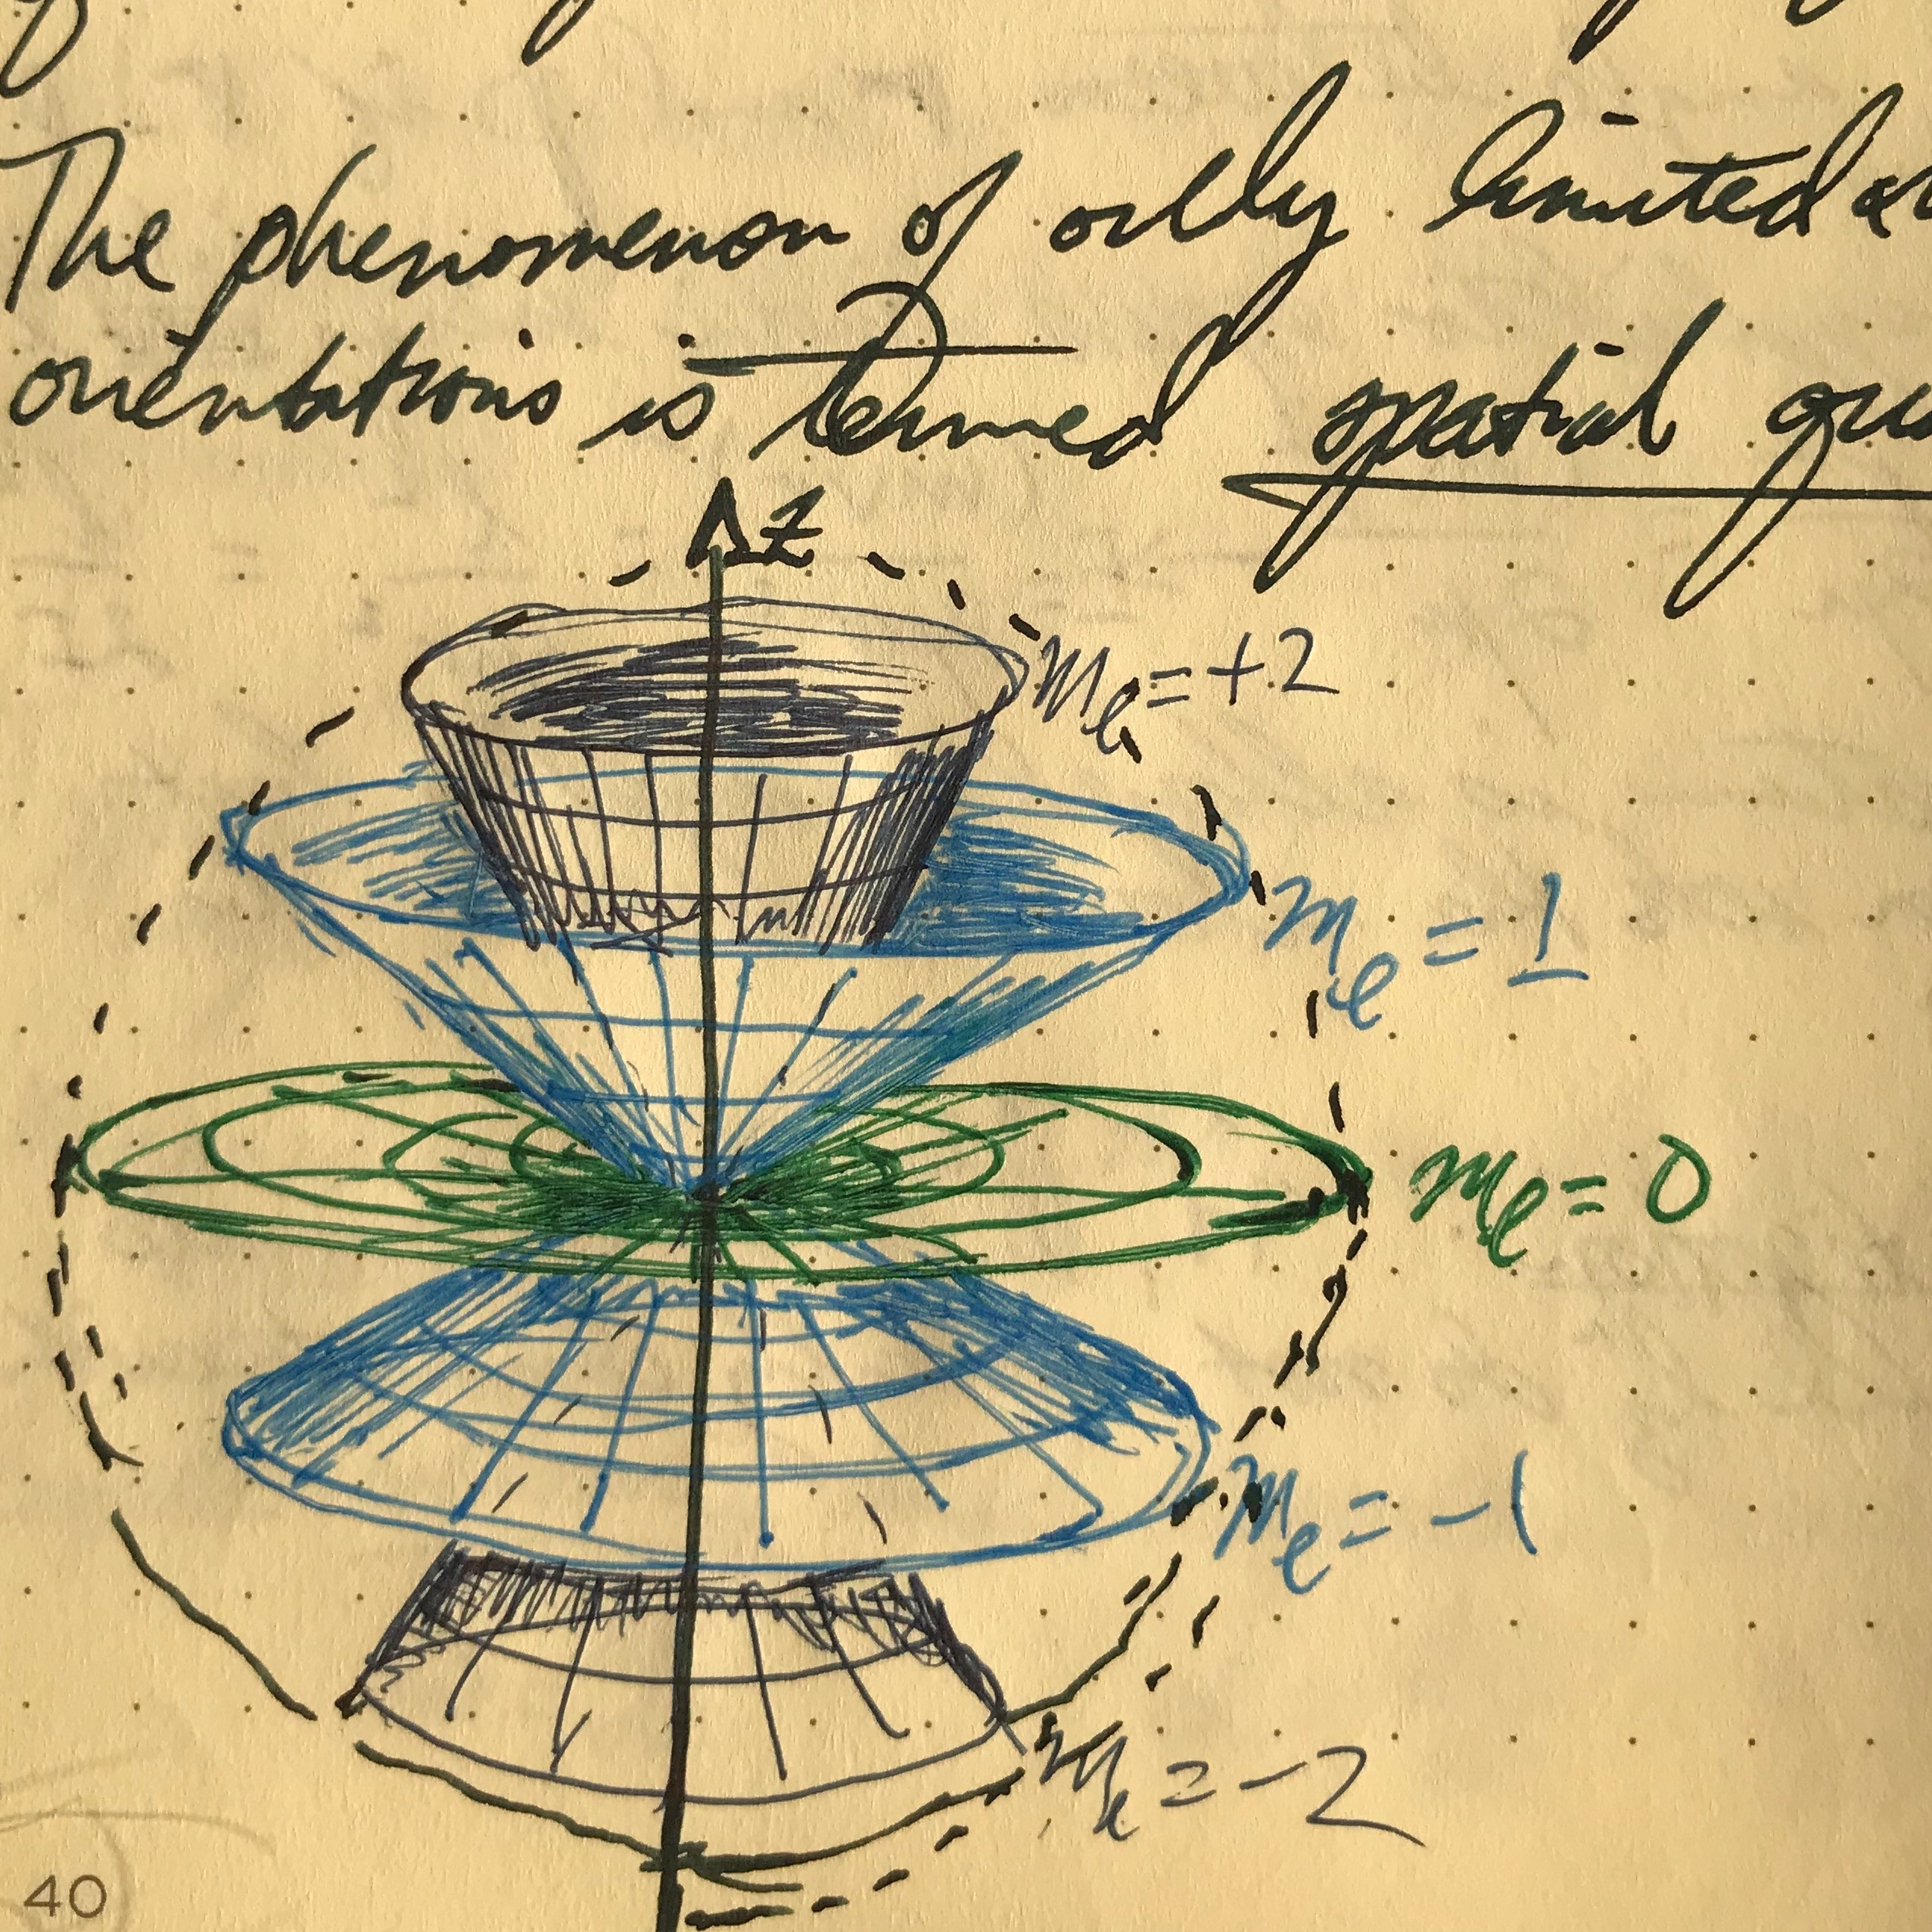 The phenomenon of only limited
orientations is termed spatial
z
mℓ=+2
mℓ=1
mℓ=0
mℓ=-1
mℓ=-2
40